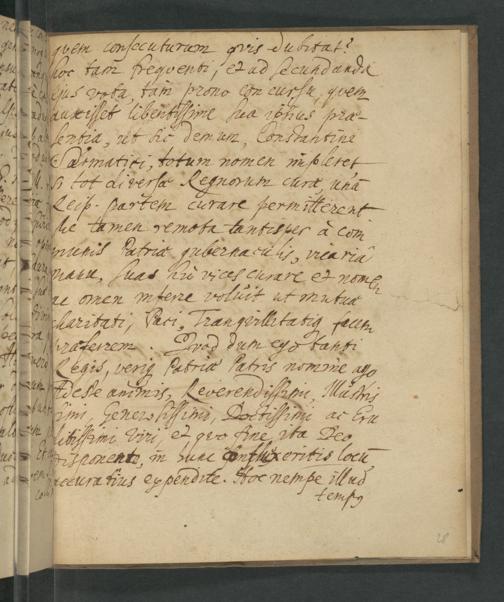 quem consecuturum quis dubitat?
hoc tam frequenti, et ad secundanda
ejus vota, tam prono concursu, quem
auxisset libentissime sua ipsius præ-
sentia, ut hic demum, Constantini
Sarmatici, totum nomen impleret
si tot diversæ Regnorum curæ, unâ
Reip: partem curare permitterent
hic tamen remota tantisper à com
munis Patriæ gubernaculis, vicariâ
manu, suas hic vices curare et nomen
ac omen inferre voluit ut mutuæ
charitati, Paci, Tranquillitatiq facem
præferrem. Quod dum ego tanti
Regis, veriq Patriæ Patris nomine ago
Adeste animis, Reverendissimi, Illustris
simi, Generosissimi, Doctissimi ac Eru
ditissimi Viri, et quo fine, ita Deo
disponente, in hunc confluxeritis locũ
accuratius expendite. Hoc nempe illud
tempq
28